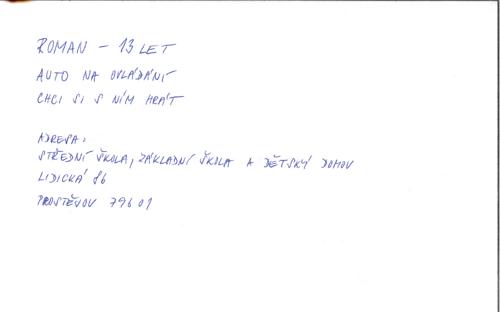 ROMAN - 13 LET
AUTO NA OVLÁDÁNÍ
CHCI SI S NÍM HRÁT
ADRESA:
STŘEDNÍ ŠKOLA, ZÁKLADNÍ ŠKOLA A DĚTSKÝ DOMOV
LIDICKÁ 86
PROSTĚJOV 796 01